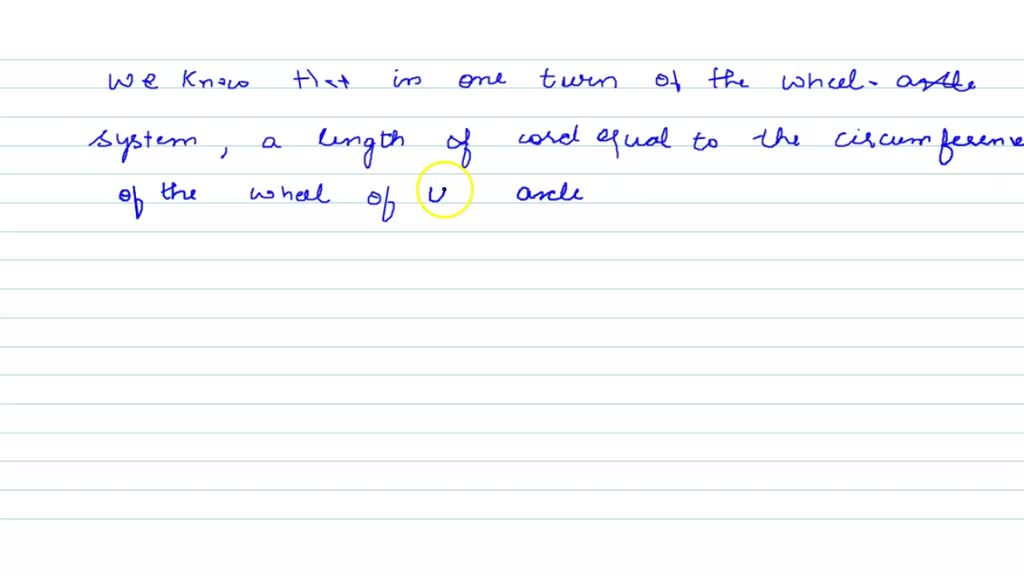 we know that in one turn of the wheel-axle
system, a length of cord equal to the circumference
of the wheel of axle